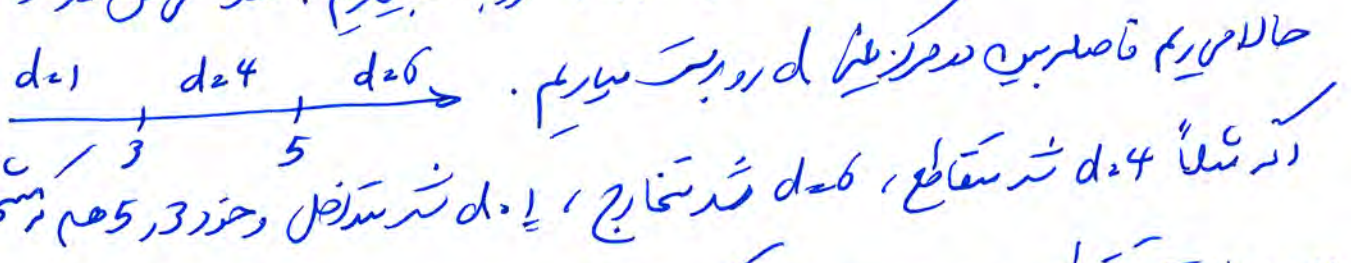 حالا می ریم فاصله بین دو مرکز یعنی d رو بدست میاریم.
d=1 d=4 d=6
3 5
اگه مثلاً d=4 شد متقاطع، d=6 شد متخارج، d=1 شد متداخل و خود 3 و 5 هم